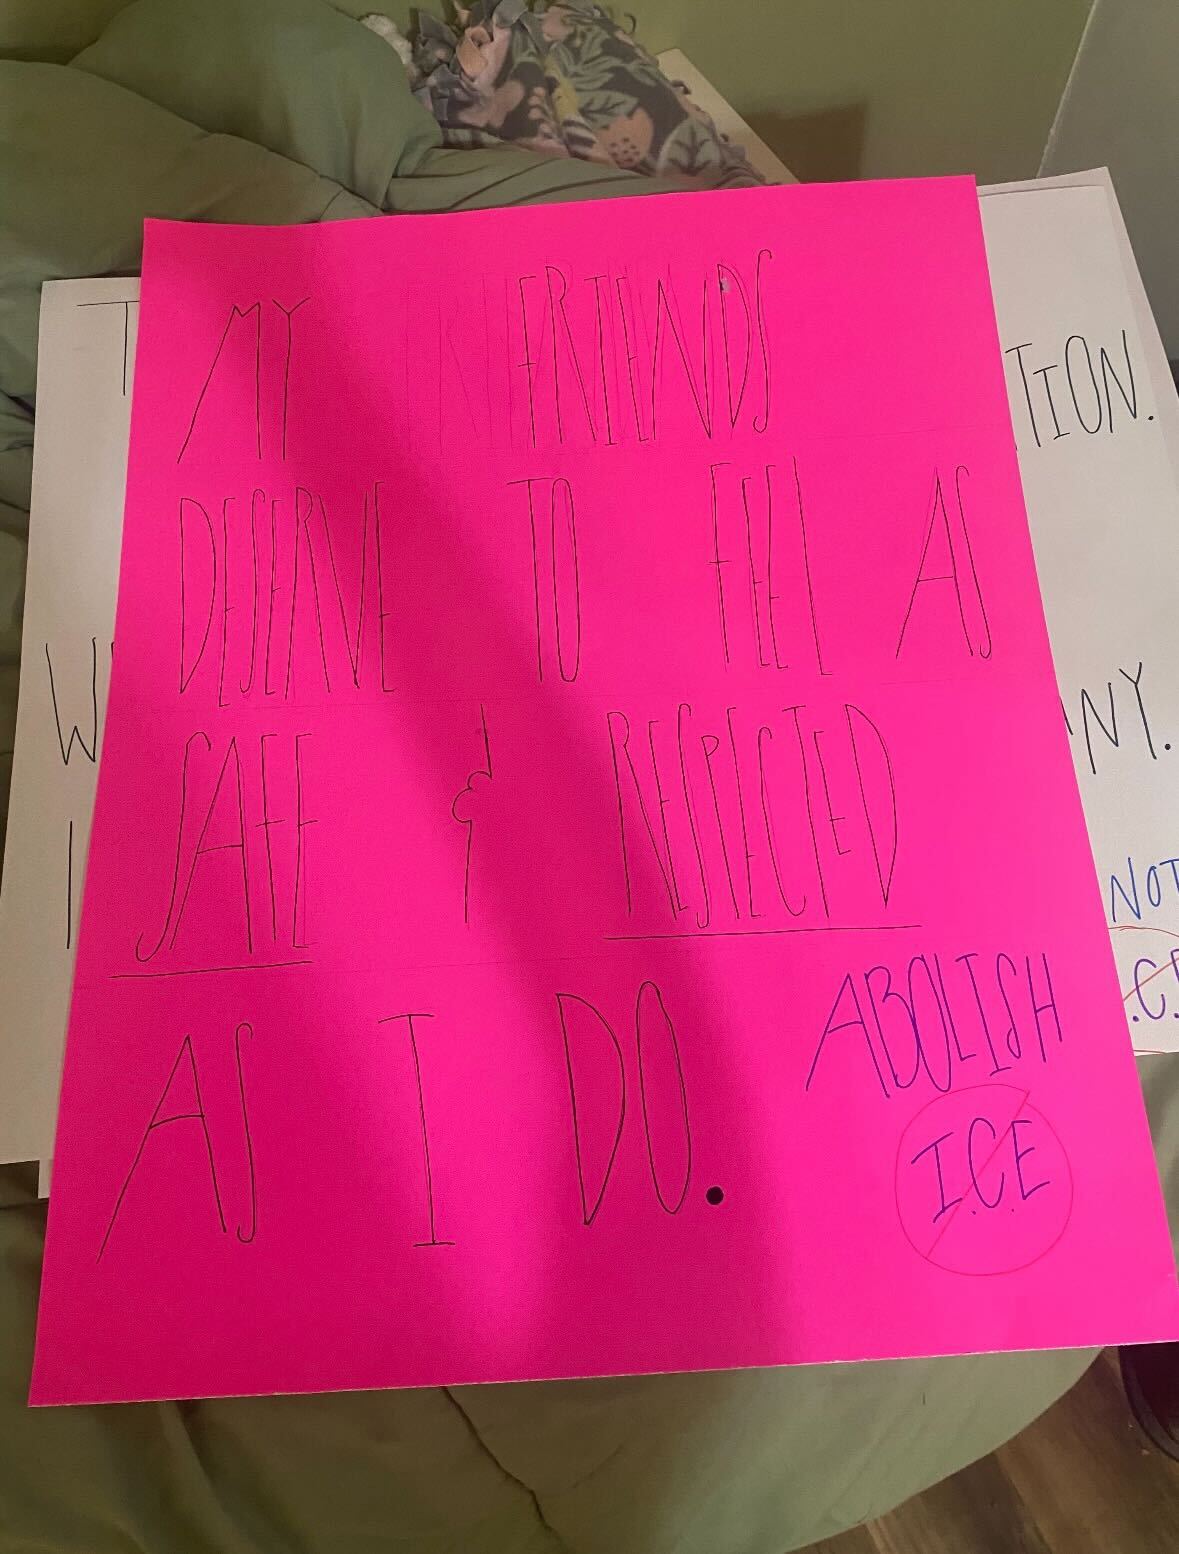 MY FRIENDS
DESERVE TO FEEL AS
SAFE & RESPECTED
AS I DO.
ABOLISH
I.C.E
T
TION.
W
NY.
I
NOT
.C.E